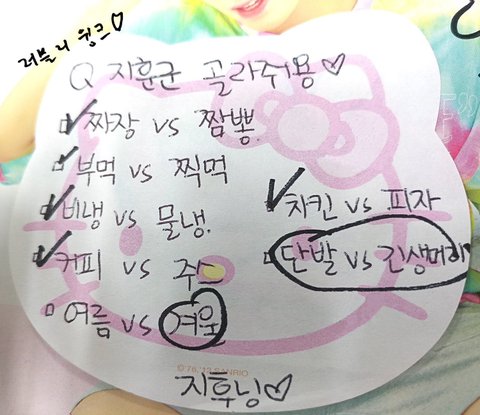 러블리 윙크♡
Q 지훈군 골라줘용♡
짜장 vs 짬뽕.
부먹 vs 찍먹
비냉 vs 물냉.
커피 vs 쥬스
여름 vs 겨울
치킨 vs 피자
단발 vs 긴생머리
©'76,'13 SANRIO
지후닝♡